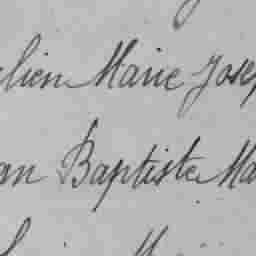 lien Marie Josep
an Baptiste Ma